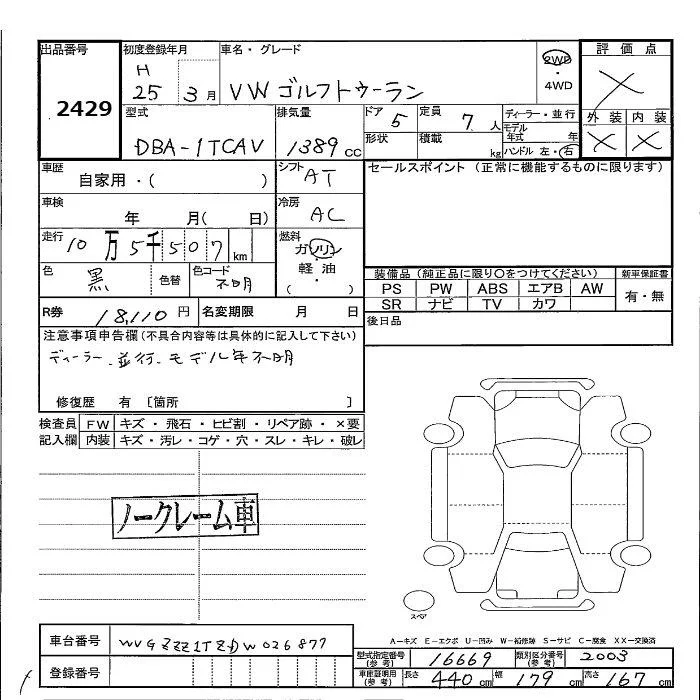 出品番号
2429
初度登録年月
H
25 3月
車名・グレード
VW ゴルフトゥーラン
2WD
・
4WD
評価点
×
外装 内装
× ×
型式
DBA-1TCAV
排気量
1389 cc
ドア
5
定員
7 人
形状
積載
kg
ディーラー・並行
モデル
年式 年
ハンドル 左・右
車歴
自家用・( )
シフト
AT
セールスポイント (正常に機能するものに限ります)
車検
年 月( 日)
冷房
AC
走行
10万5千507 km
燃料
ガソリン
軽油
( )
色
黒
色替
色コード
不明
装備品 (純正品に限り○をつけてください)
PS PW ABS エアB AW
SR ナビ TV カワ
新車保証書
有・無
R券
18,110 円
名変期限 月 日
後日品
注意事項申告欄(不具合内容等は具体的に記入して下さい)
ディーラー、並行、モデル年不明
修復歴 有 〔箇所 〕
検査員
記入欄
FW キズ・飛石・ヒビ割・リペア跡・×要
内装 キズ・汚レ・コゲ・穴・スレ・キレ・破レ
ノークレーム車
スペア
A-キズ E-エクボ U-凹み W-補修跡 S-サビ C-腐食 XX-交換済
車台番号
WVGZZZ1TZDW026877
登録番号
型式指定番号
(参考)
16669
類別区分番号
(参考)
2003
車庫証明用
(参考)
長さ 440 cm 幅 179 cm 高さ 167 cm